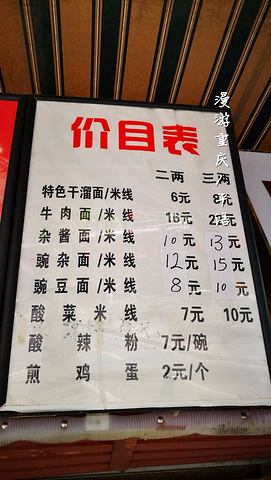 漫游重庆
价目表
二两 三两
特色干溜面/米线 6元 8元
牛肉面/米线 16元
杂酱面/米线 10元 13元
豌杂面/米线 12元 15元
豌豆面/米线 8元 10元
酸菜米线 7元 10元
酸辣粉 7元/碗
煎鸡蛋 2元/个